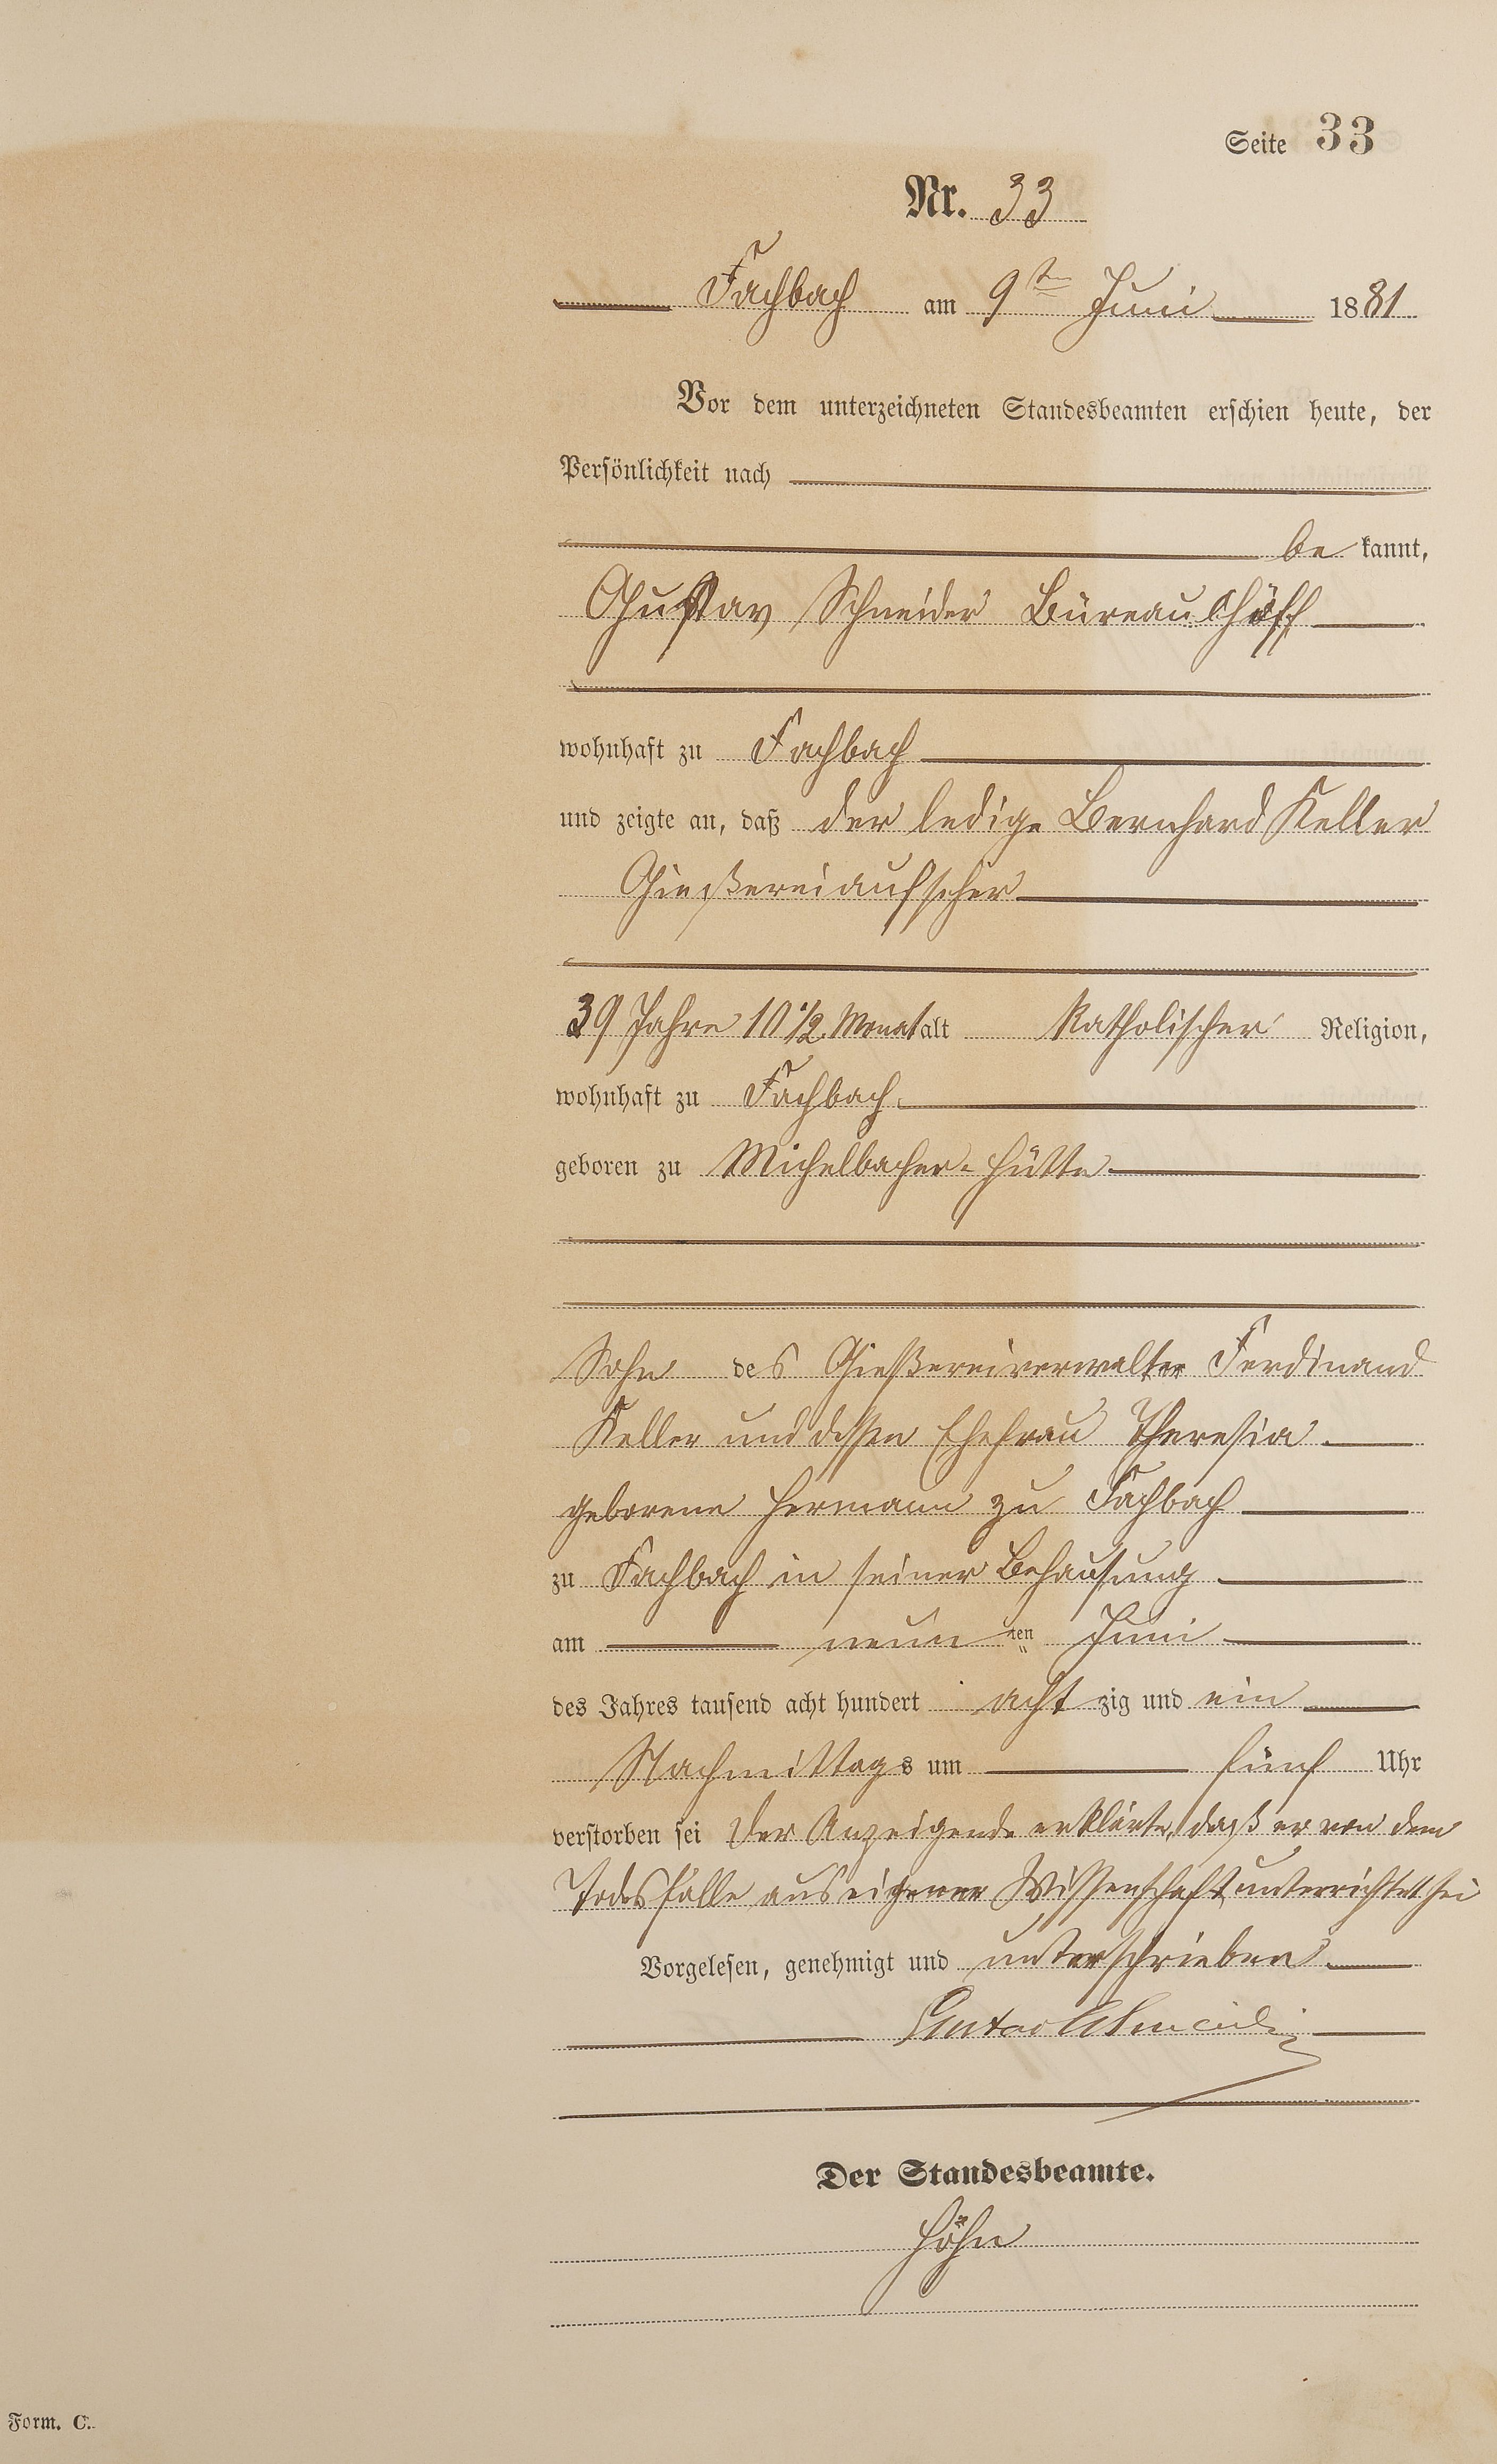 Seite 33
Nr. 33
Fachbach am 9ten Juni 1881
Vor dem unterzeichneten Standesbeamten erschien heute, der
Persönlichkeit nach
be kannt,
Gustav Schneider Büreauchäff
wohnhaft zu Fachbach
und zeigte an, daß der ledige Bernhard Keller
Gießereiaufseher
39 Jahre 10 1/2 Monat alt Katholischer Religion,
wohnhaft zu Fachbach
geboren zu Michelbacher-Hütte
Sohn des Gießereiverwalter Ferdinand
Keller und dessen Ehefrau Theresia
geborene Hermann zu Fachbach
zu Fachbach in seiner Behausung
am neun ten Juni
des Jahres tausend acht hundert acht zig und ein
Nachmittags um fünf Uhr
verstorben sei Der Anzeigende erklärte, daß er von dem
Todesfalle aus eigener Wissenschaft unterrichtet sei
Vorgelesen, genehmigt und unterschrieben
Gustav Schneider
Der Standesbeamte.
Höhn
Form. C.